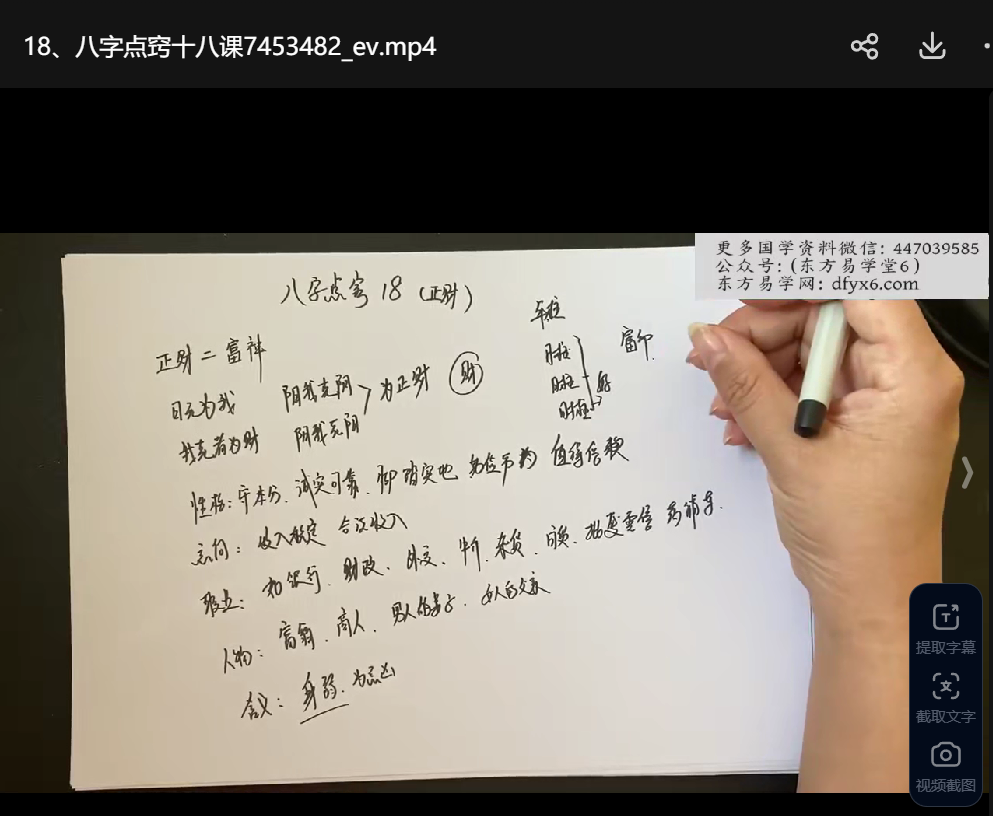 18、八字点窍十八课7453482_ev.mp4
更多国学资料微信：447039585
公众号：(东方易学堂6)
东方易学网：dfyx6.com
八字点窍 18 (正财)
正财 = 富神
日元为我
我克者为财
阳我克阴
阴我克阳
为正财
财
年柱
月柱
日柱
时柱
性格：守本分、诚实可靠、脚踏实地
值得信赖
意向：收入稳定 合法收入
职业：
银行、财政、外交
批发零售
人物：富翁、商人、男人的妻子、女人的父亲
含义：身弱、为忌凶
提取字幕
截取文字
视频截图